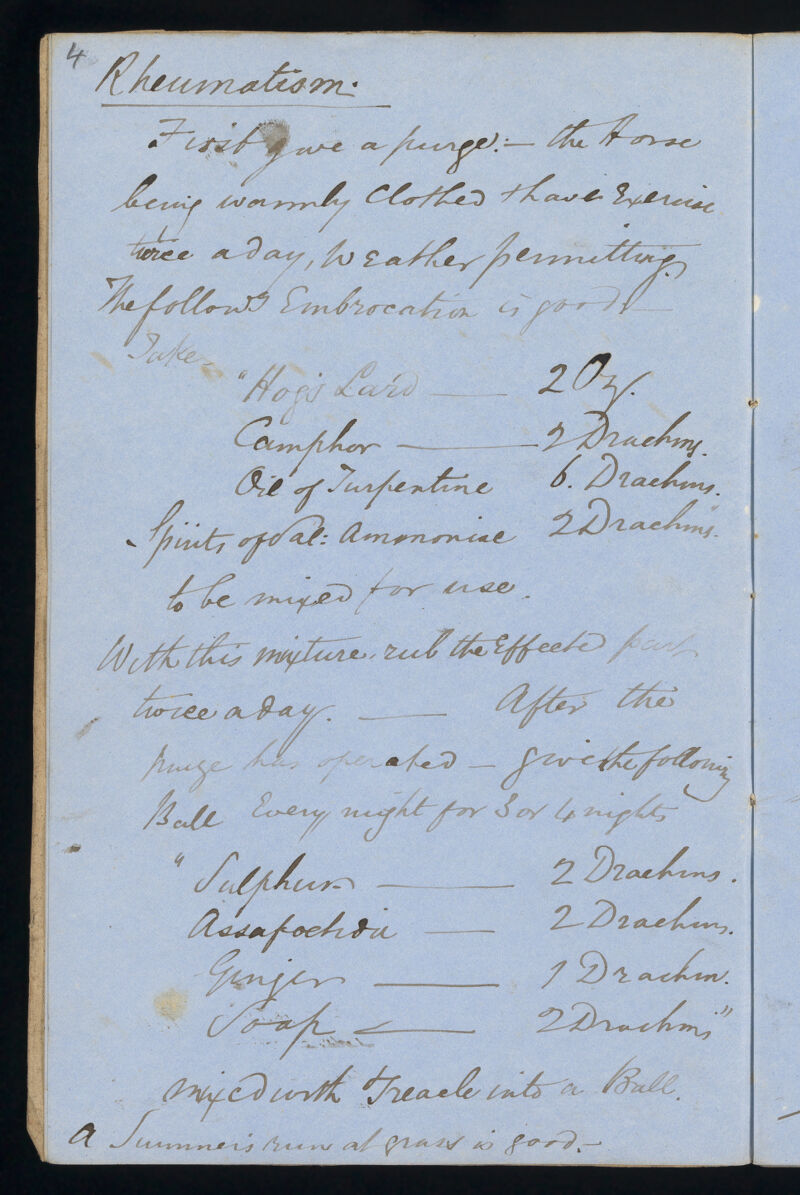 4
Rheumatism.
First give a purge:— the Horse
being warmly Clothed & have Exercise
twice a day, Weather permitting,
The followg Embrocation is good—
Take—
"Hog's Lard — 2 Oz.
Camphor — 2 Drachms.
Oil of Turpentine 6. Drachms.
Spirits of Sal: Ammoniac 2 Drachms".
to be mixed for use.
With this mixture, rub the Effected part
twice a day. — After the
purge has operated — give the following
Ball Every night for 3 or 4 nights
"Sulphur — 2 Drachms.
Assafoetida — 2 Drachms.
Ginger — 1 Drachm.
Soap — 2 Drachms"
mixed with Treacle into a Ball.
A Summers run at grass is good.—